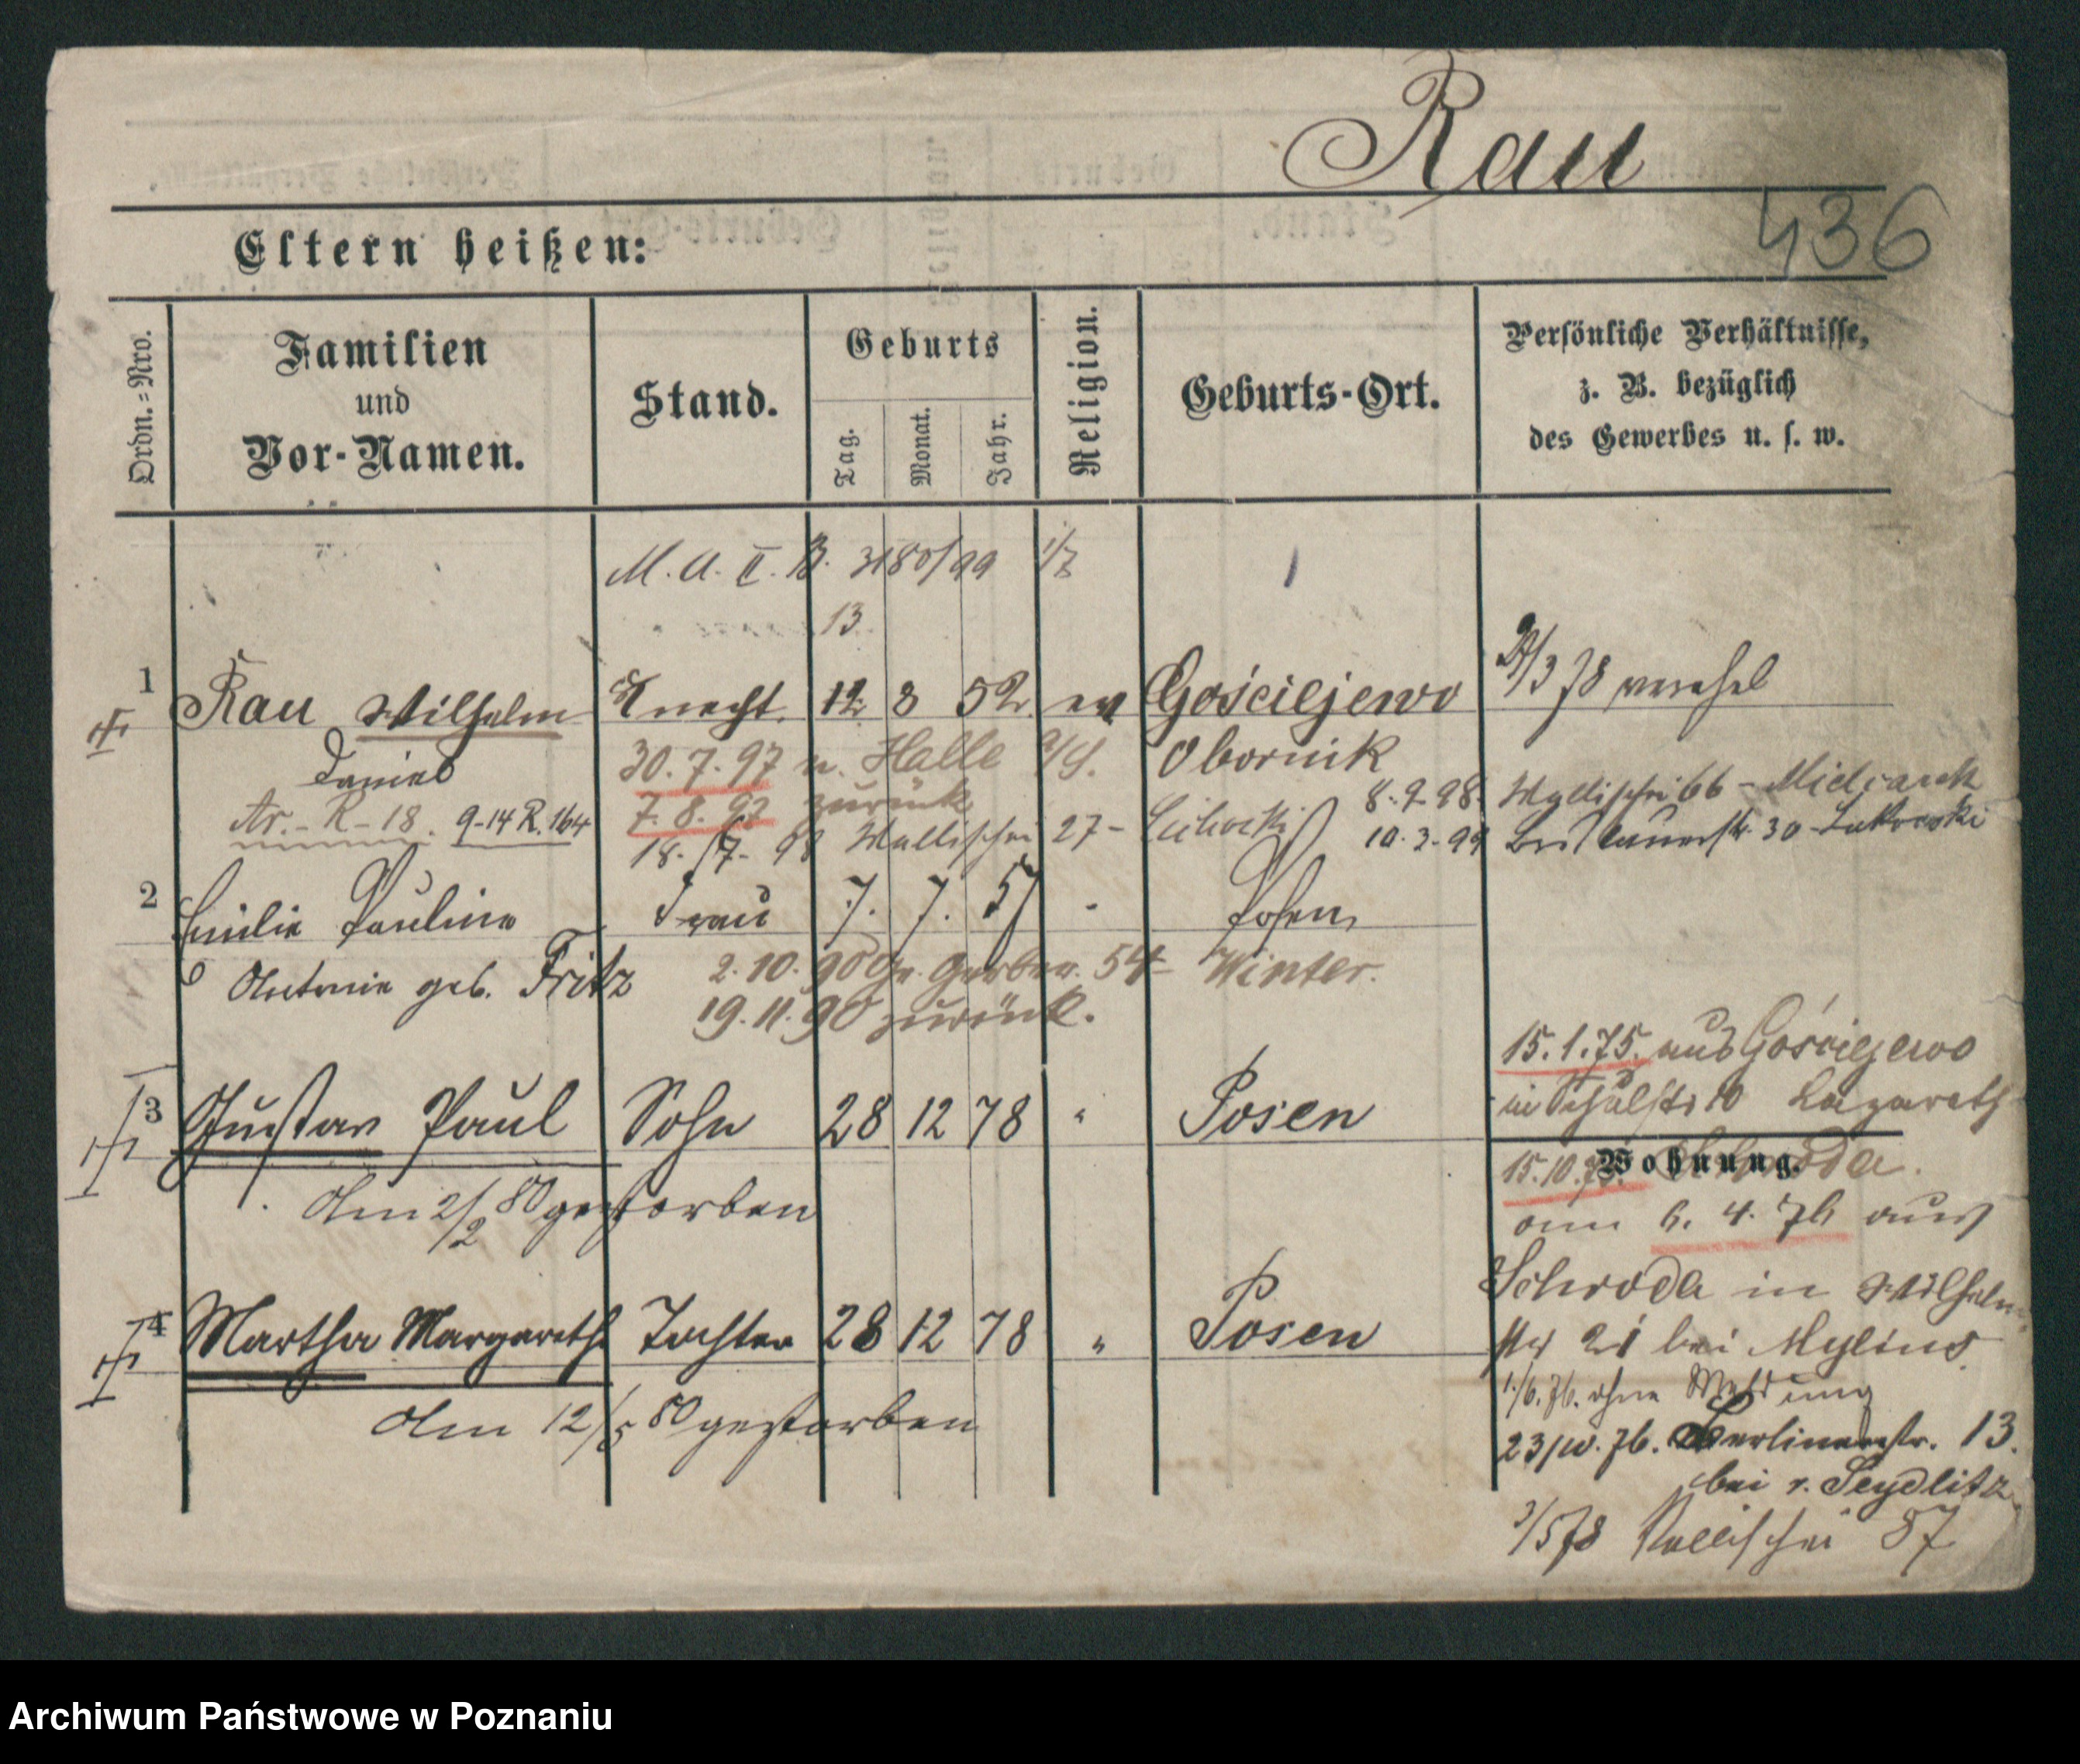 Rau
436
Eltern heißen:
Ordn.-Nro.
Familien
und
Vor-Namen.
Stand.
Geburts
Tag.
Monat.
Jahr.
Religion.
Geburts-Ort.
Persönliche Verhältnisse,
z. B. bezüglich
des Gewerbes u. s. w.
M. A. II. B. 3180/99 1/7
13
1 Rau Wilhelm Knecht 12 3 52 ev Gościejewo
/3 78
Daniel
Obornik
30.7.97 n. Halle a/S.
7.8.97 zurück
Ar.-R-18. 9-14 R. 164
18.7.98 Wallischei 27 - Cichocki
8.9.98. Wallischei 66 - Mielcarek
10.3.99 Breslauerstr. 30 - Lukowski
2 Emilie Pauline Frau 7. 7. 57 - Posen
Antonie geb. Fritz
2.10.90 Gr. Gerber. 54 Winter.
19.11.90 zurück.
15.1.75. aus Gościejewo
in Schulstr 10 Lazareth
3 Gustav Paul Sohn 28 12 78 " Posen
Wohnung.
15.10.75. Schroda.
Am 2/2 80 gestorben
am 6. 4. 76 aus
Schroda in Wilhelm
str 21 bei Mylius
4 Martha Margareth Tochter 28 12 78 " Posen
1./6.76. ohne Meldung
Am 12/5 80 gestorben
23/10. 76. Berlinerstr. 13.
bei v. Seydlitz
3/5 78 Wallischei 87